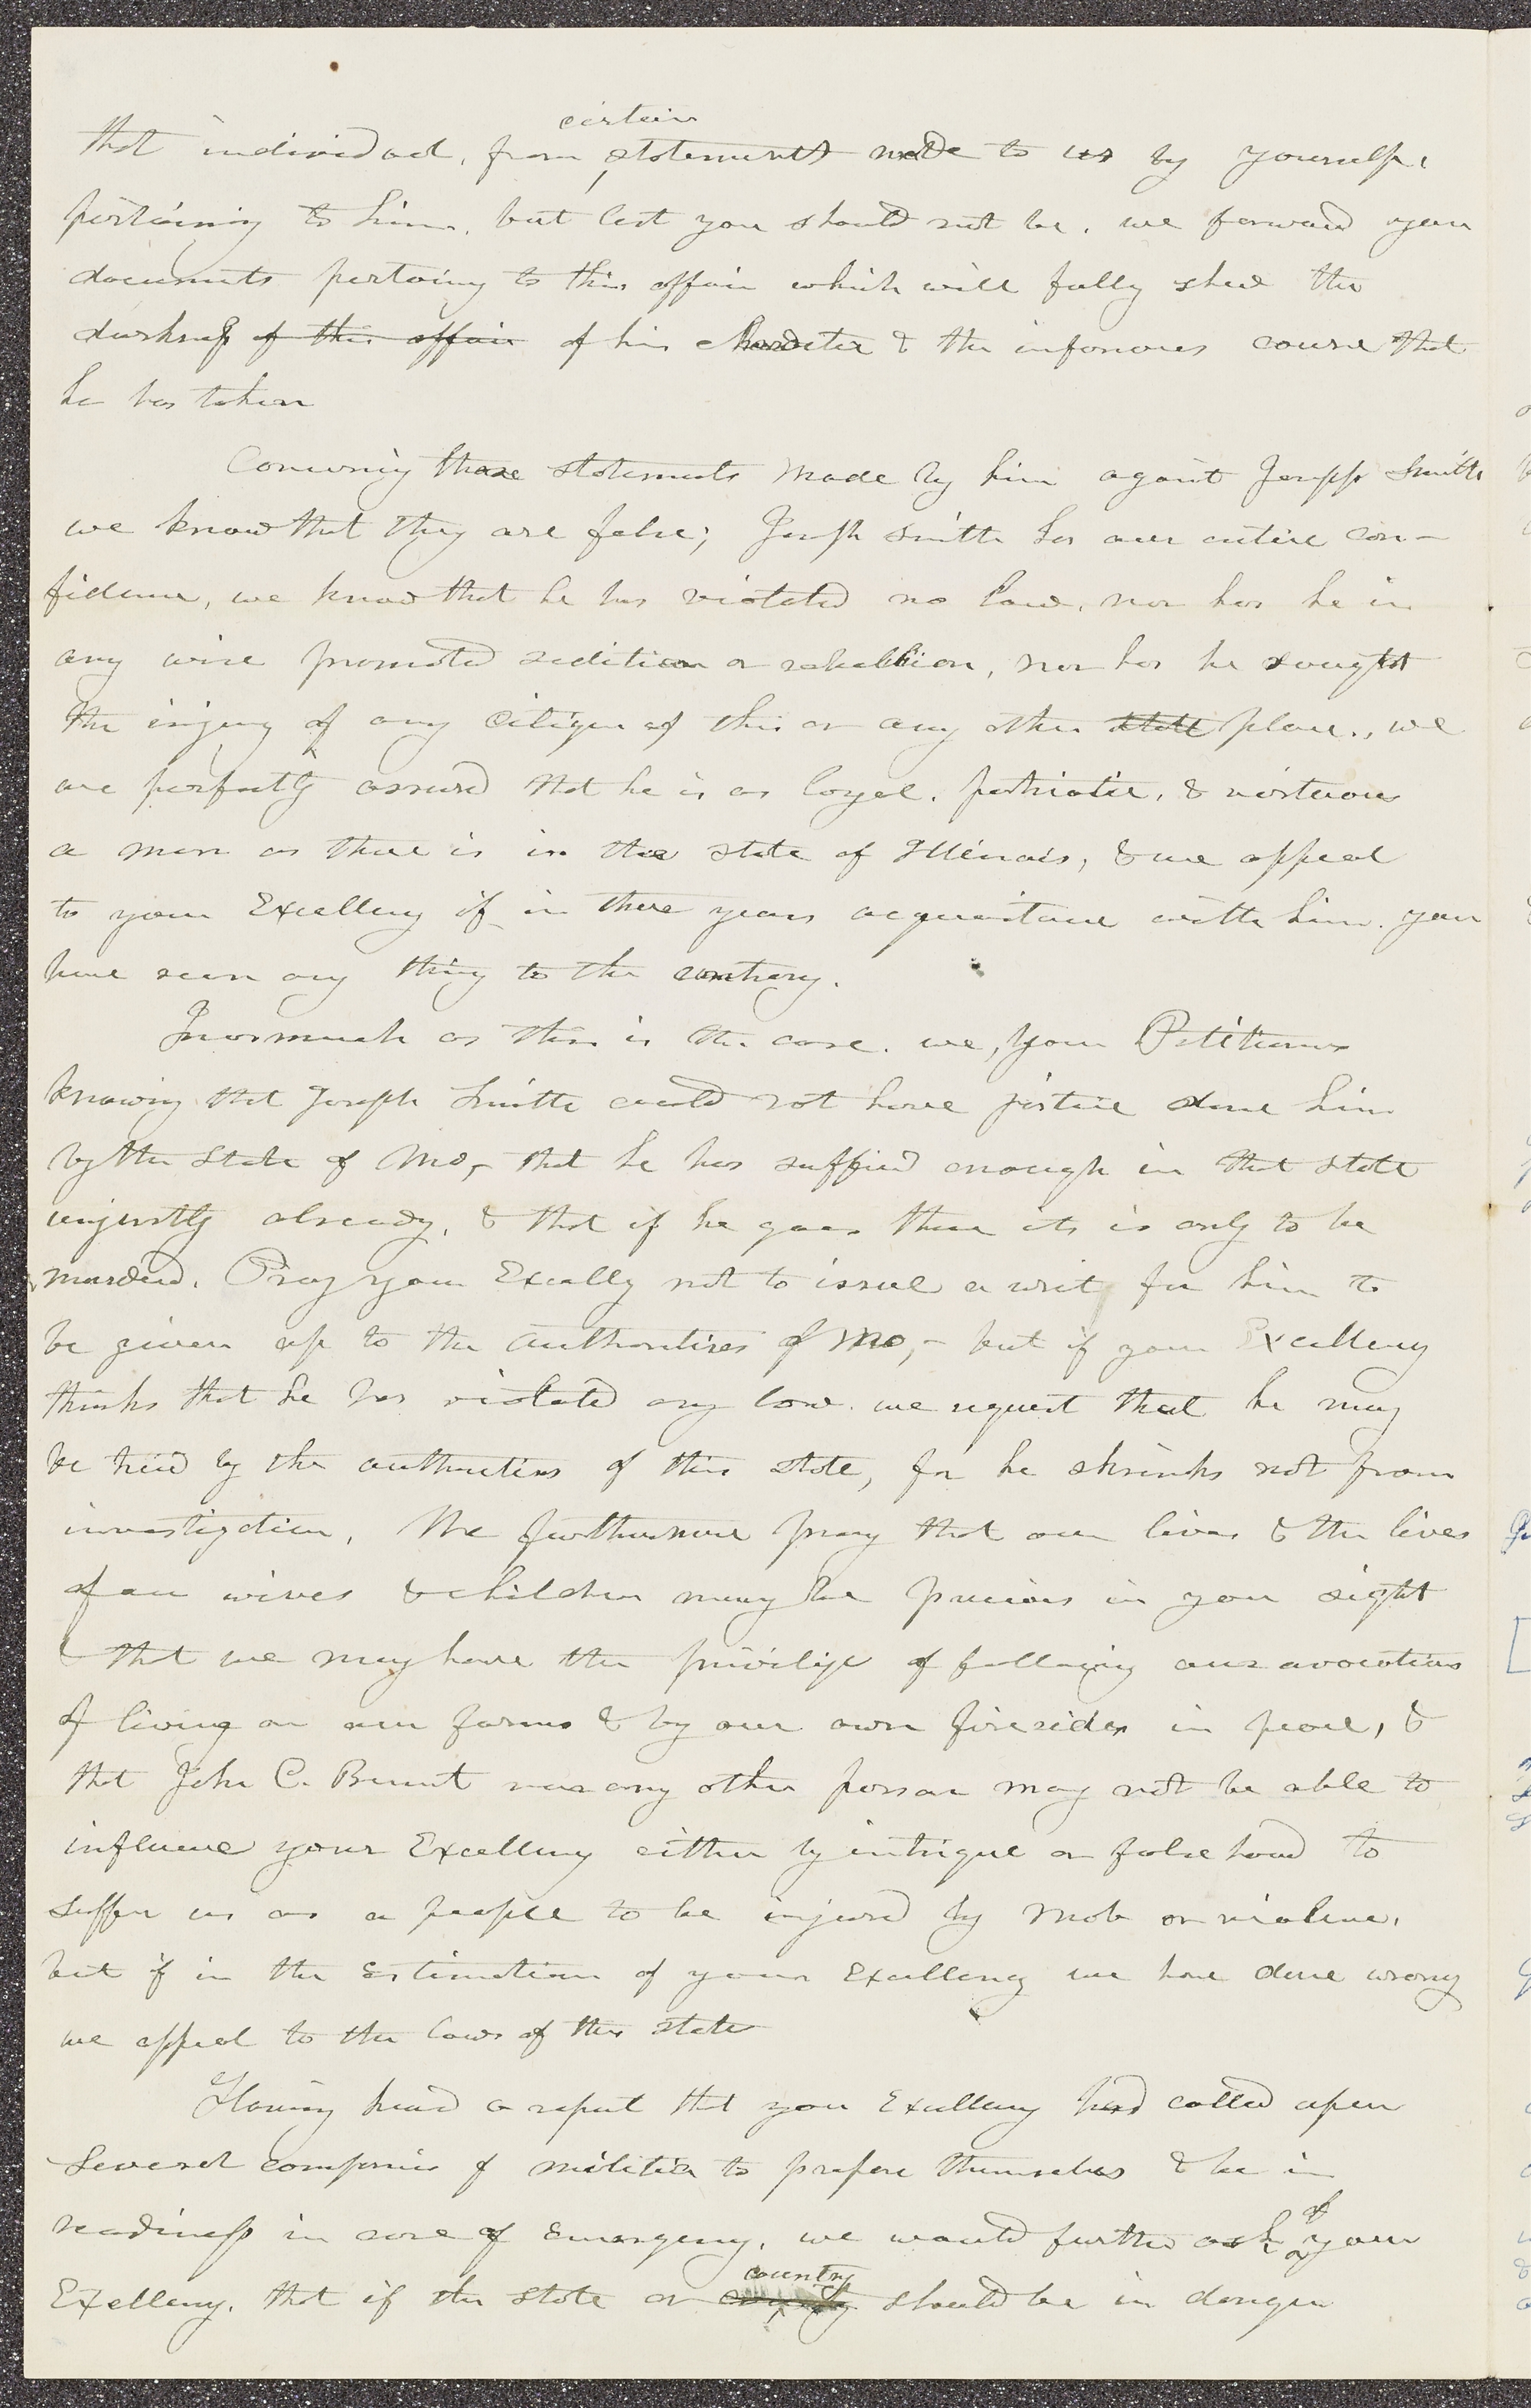 certain
that individual, from statements made to us by yourself,
pertaining to him, but lest you should not be, we forward you
documents pertaing to this affair which will fully shew the
darkness of this affair of his character & the infamous course that
he has taken
Concerning those statements made by him against Joseph Smith
we know that they are false; Joseph Smith has our entire con-
fidence, we know that he has violated no law, nor has he in
any wise promoted sedition or rebellion, nor has he sought
the injury of any citizen of this or any other state place., we
are perfectly assured that he is as loyel, patriotic, & virtuous
a man as there is in the state of Illinois, & we appeal
to your Excellency if in three years acquaintance with him you
have seen any thing to the contrary.
Inasmuch as this is the case, we, your Petitioners
knowing that Joseph Smith could not have justice done him
by the State of Mo,- that he has suffered enough in that state
unjustly already, & that if he goes there its is only to be
murdered. Pray your Excellency not to issue a writ for him to
be given up to the authorities of Mo,- but if your Excellency
thinks that he has violated any law, we request that he may
be tried by the authorities of this state, for he shrinks not from
investigation, We furthermore pray that our lives & the lives
of our wives & children may be precious in your sight
& that we may have the privilige of following our avocations
of living on our farms & by our own firesides in peace, &
that John C. Bennet nor any other person may not be able to
influence your Excellency either by intrigue or falsehood to
suffer us as a people to be injured by mob or violence,
but if in the estimation of your Excellency we have done wrong
we appeal to the laws of this state
Having heard a report that your Excellency had called upon
Several companies of militia to prepare themselves & be in
readiness in case of emergency, we would further ask of your
country
Excellency, that if the state or should be in danger